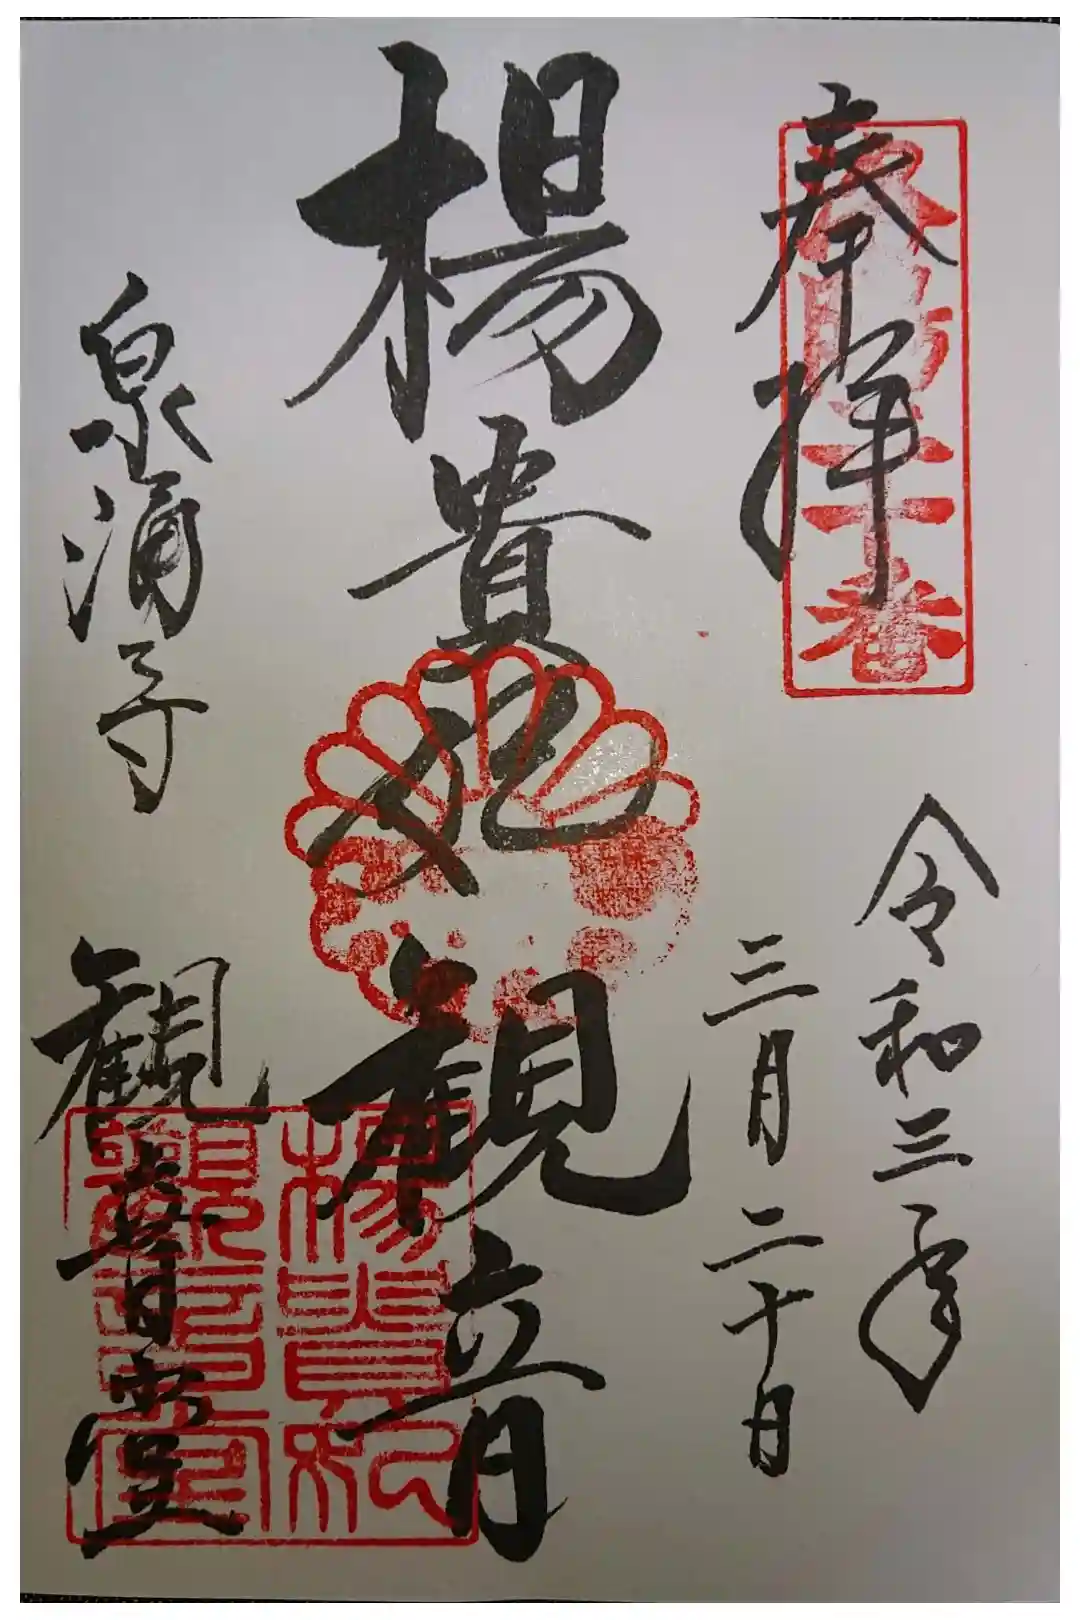 奉拝
洛陽二十番
令和三年
三月二十日
楊貴妃観音
泉涌寺
観音堂
楊貴妃
観音堂